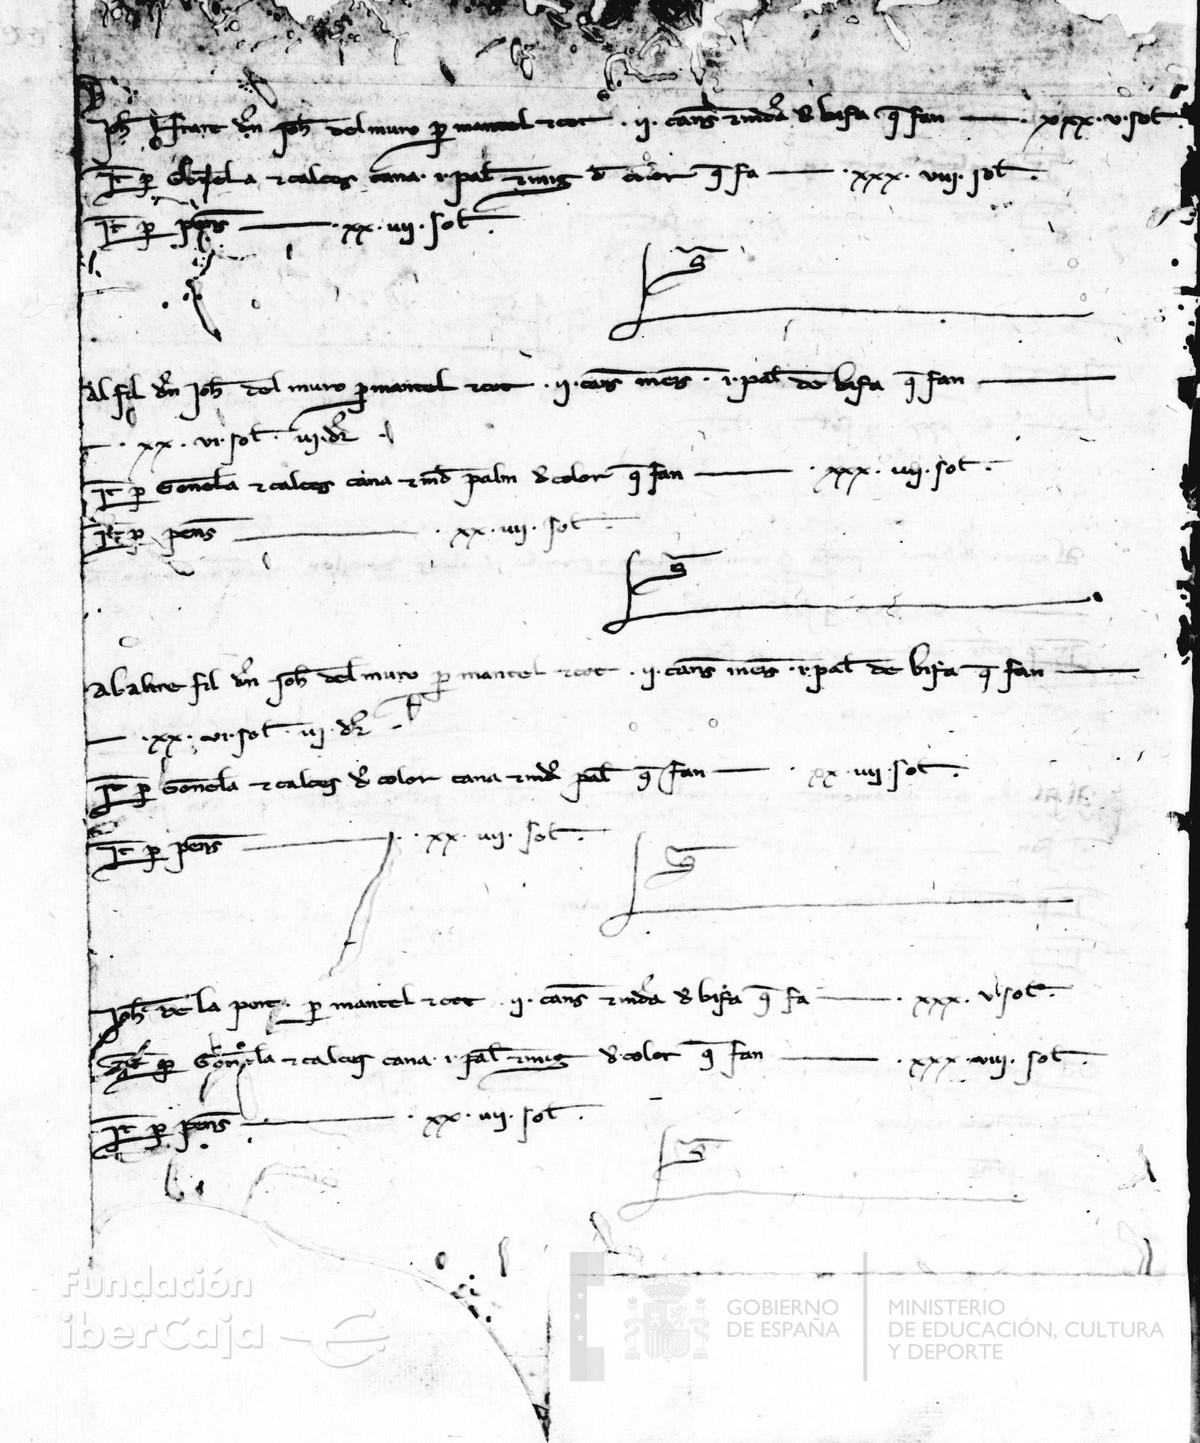 Joh Frare dn Joh del muro p mantel e cot . ii . cans e mda d bifa q fan . xxx . v . sol
It p Gonela e calces cana . i . pal e mig d color q fa . xxx . viii . sol .
It p pens . xx . vii . sol .
Al fil dn Joh del muro p mantel e cot . ii . cans mens . i . pal de bifa q fan
. xx . vi . sol . vi . dr .
It p Gonela e calces cana e md palm d color q fan . xxx . vii . sol .
It p pens . xx . vii . sol .
Al altre fil dn Joh del muro p mantel e cot . ii . cans mens . i . pal de bifa q fan
. xx . vi . sol . vi . dr .
It p Gonela e calces d color cana e md pal q fan . xx . vii . sol .
It p pens . xx . vii . sol .
Joh de la port p mantel e cot . ii . cans e mda d bifa q fa . xxx . v . sol .
It p Gonela e calces cana . i . pal e mig d color q fan . xxx . viii . sol .
It p pens . xx . vii . sol .
Fundación
iberCaja
GOBIERNO
DE ESPAÑA
MINISTERIO
DE EDUCACIÓN, CULTURA
Y DEPORTE